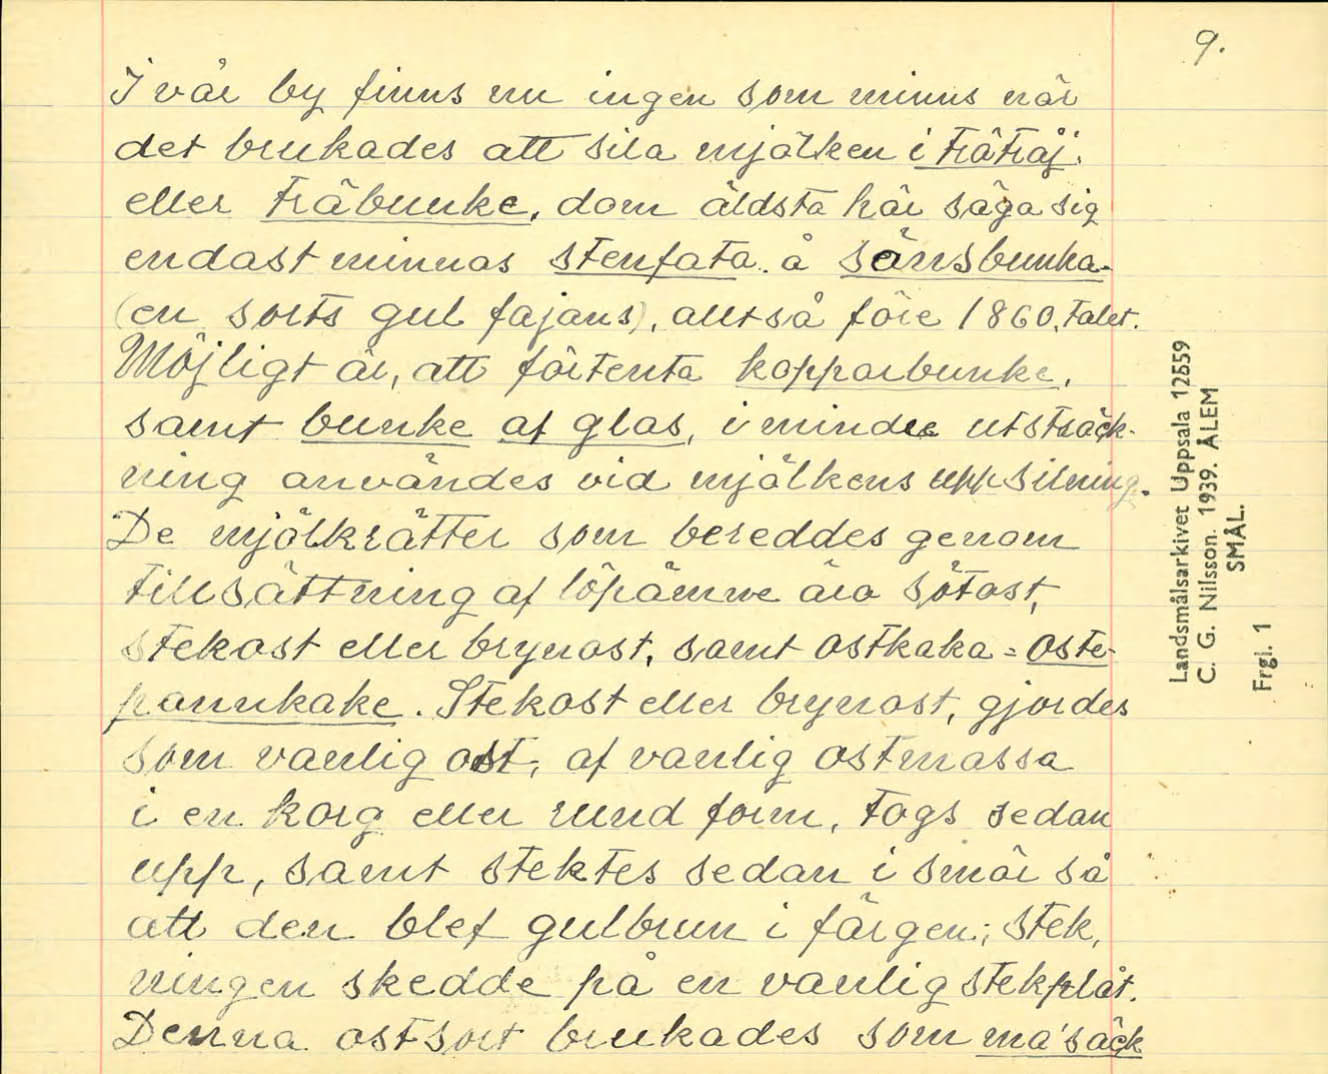 9.
I vår by finns nu ingen som minns när
det brukades att sila mjölken i träträj
eller träbunke, dom äldsta här säga sig
endast minnas stenfata å särsbunka
(en sorts gul fajans), alltså före 1860, talet.
Möjligt är, att förtenta kopparbunke,
samt bunke af glas, i mindre utsträck-
ning användes vid mjölkens uppsilning.
De mjölkrätter som bereddes genom
tillsättning af löpämne äro sötost,
stekost eller brynost, samt ostkaka = oste-
pannkake. Stekost eller brynost, gjordes
som vanlig ost, af vanlig ostmassa
i en korg eller rund form, togs sedan
upp, samt stektes sedan i smör så
att den blef gulbrun i färgen; stek,
ningen skedde på en vanlig stekplåt.
Denna ostsort brukades som ma'säck
Landsmålsarkivet Uppsala 12559
C. G. Nilsson. 1939. ÅLEM
SMÅL.
Frgl. 1